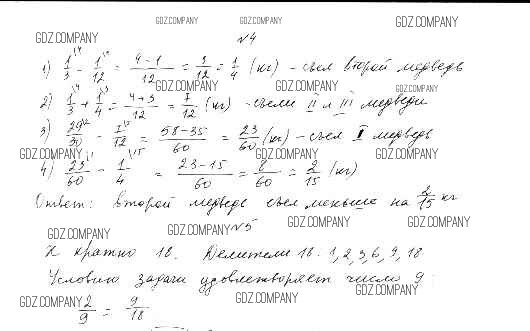 GDZ.COMPANY GDZ.COMPANY GDZ.COMPANY
GDZ.COMPANY №4
1) 1/3 - 1/12 = 4-1/12 = 3/12 = 1/4 (кг) - съел второй медведь
GDZ.COMPANY GDZ.COMPANY GDZ.COMPANY
2) 1/3 + 1/4 = 4+3/12 = 7/12 (кг) - съели II и III медведи
3) 29/30 - 7/12 = 58-35/60 = 23/60 (кг) - съел I медведь
GDZ.COMPANY GDZ.COMPANY GDZ.COMPANY
4) 23/60 - 1/4 = 23-15/60 = 8/60 = 2/15 (кг)
Ответ: второй медведь съел меньше на 2/15 кг
GDZ.COMPANY №5 GDZ.COMPANY GDZ.COMPANY
GDZ.COMPANY
X кратно 18. Делители 18: 1, 2, 3, 6, 9, 18
Условию задачи удовлетворяет число 9:
GDZ.COMPANY GDZ.COMPANY GDZ.COMPANY
2/9 = 9/18